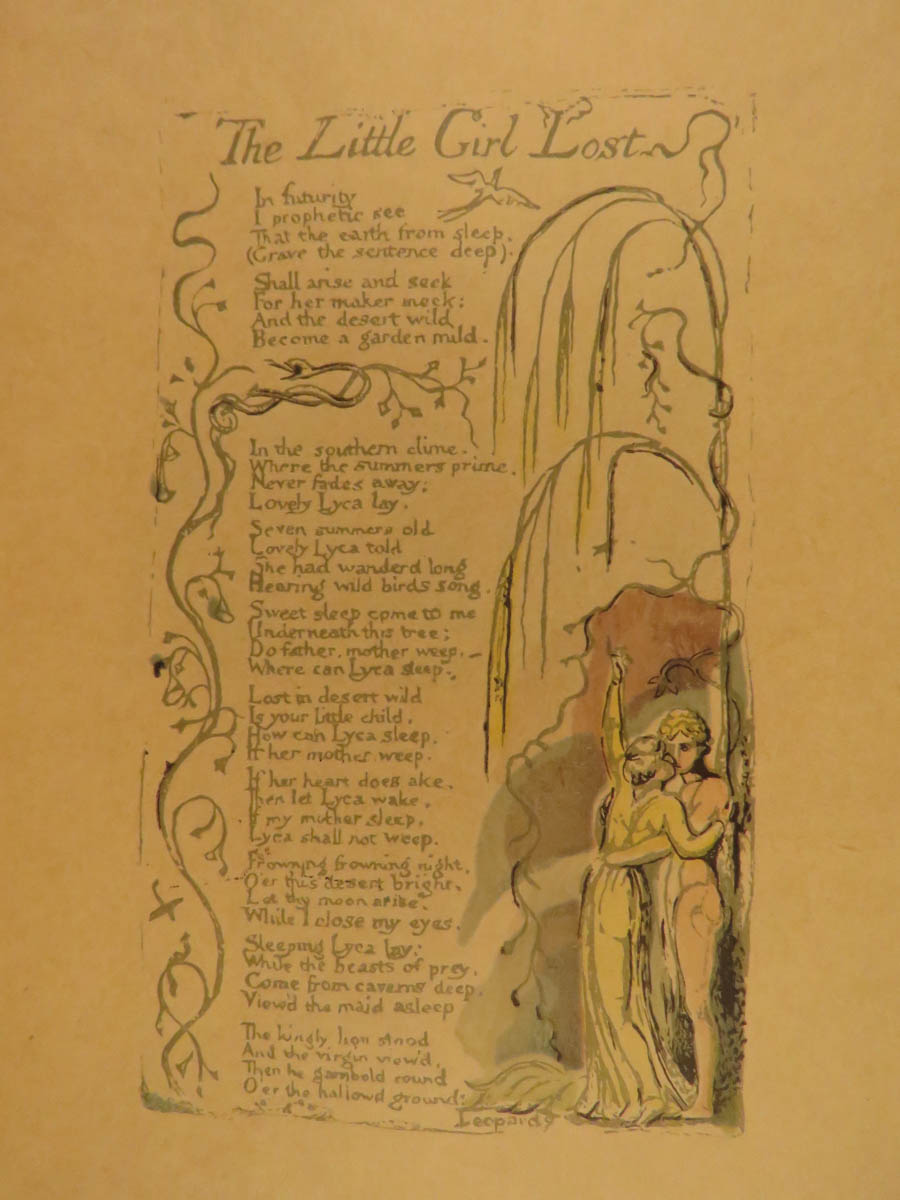 The Little Girl Lost
In futurity
I prophetic see
That the earth from sleep,
(Grave the sentence deep).
Shall arise and seek
For her maker meek:
And the desert wild
Become a garden mild.
In the southern clime.
Where the summers prime.
Never fades away;
Lovely Lyca lay.
Seven summers old
Lovely Lyca told
She had wanderd long
Hearing wild birds song.
Sweet sleep come to me
Underneath this tree;
Do father, mother weep.—
Where can Lyca sleep.
Lost in desert wild
Is your little child.
How can Lyca sleep.
If her mother weep.
If her heart does ake.
Then let Lyca wake.
If my mother sleep,
Lyca shall not weep.
Frowning frowning night,
O'er this desert bright.
Let thy moon arise.
While I close my eyes.
Sleeping Lyca lay:
While the beasts of prey,
Come from caverns deep,
View'd the maid asleep
The kingly lion stood
And the virgin view'd,
Then he gambold round
O'er the hallowd ground:
Leopards